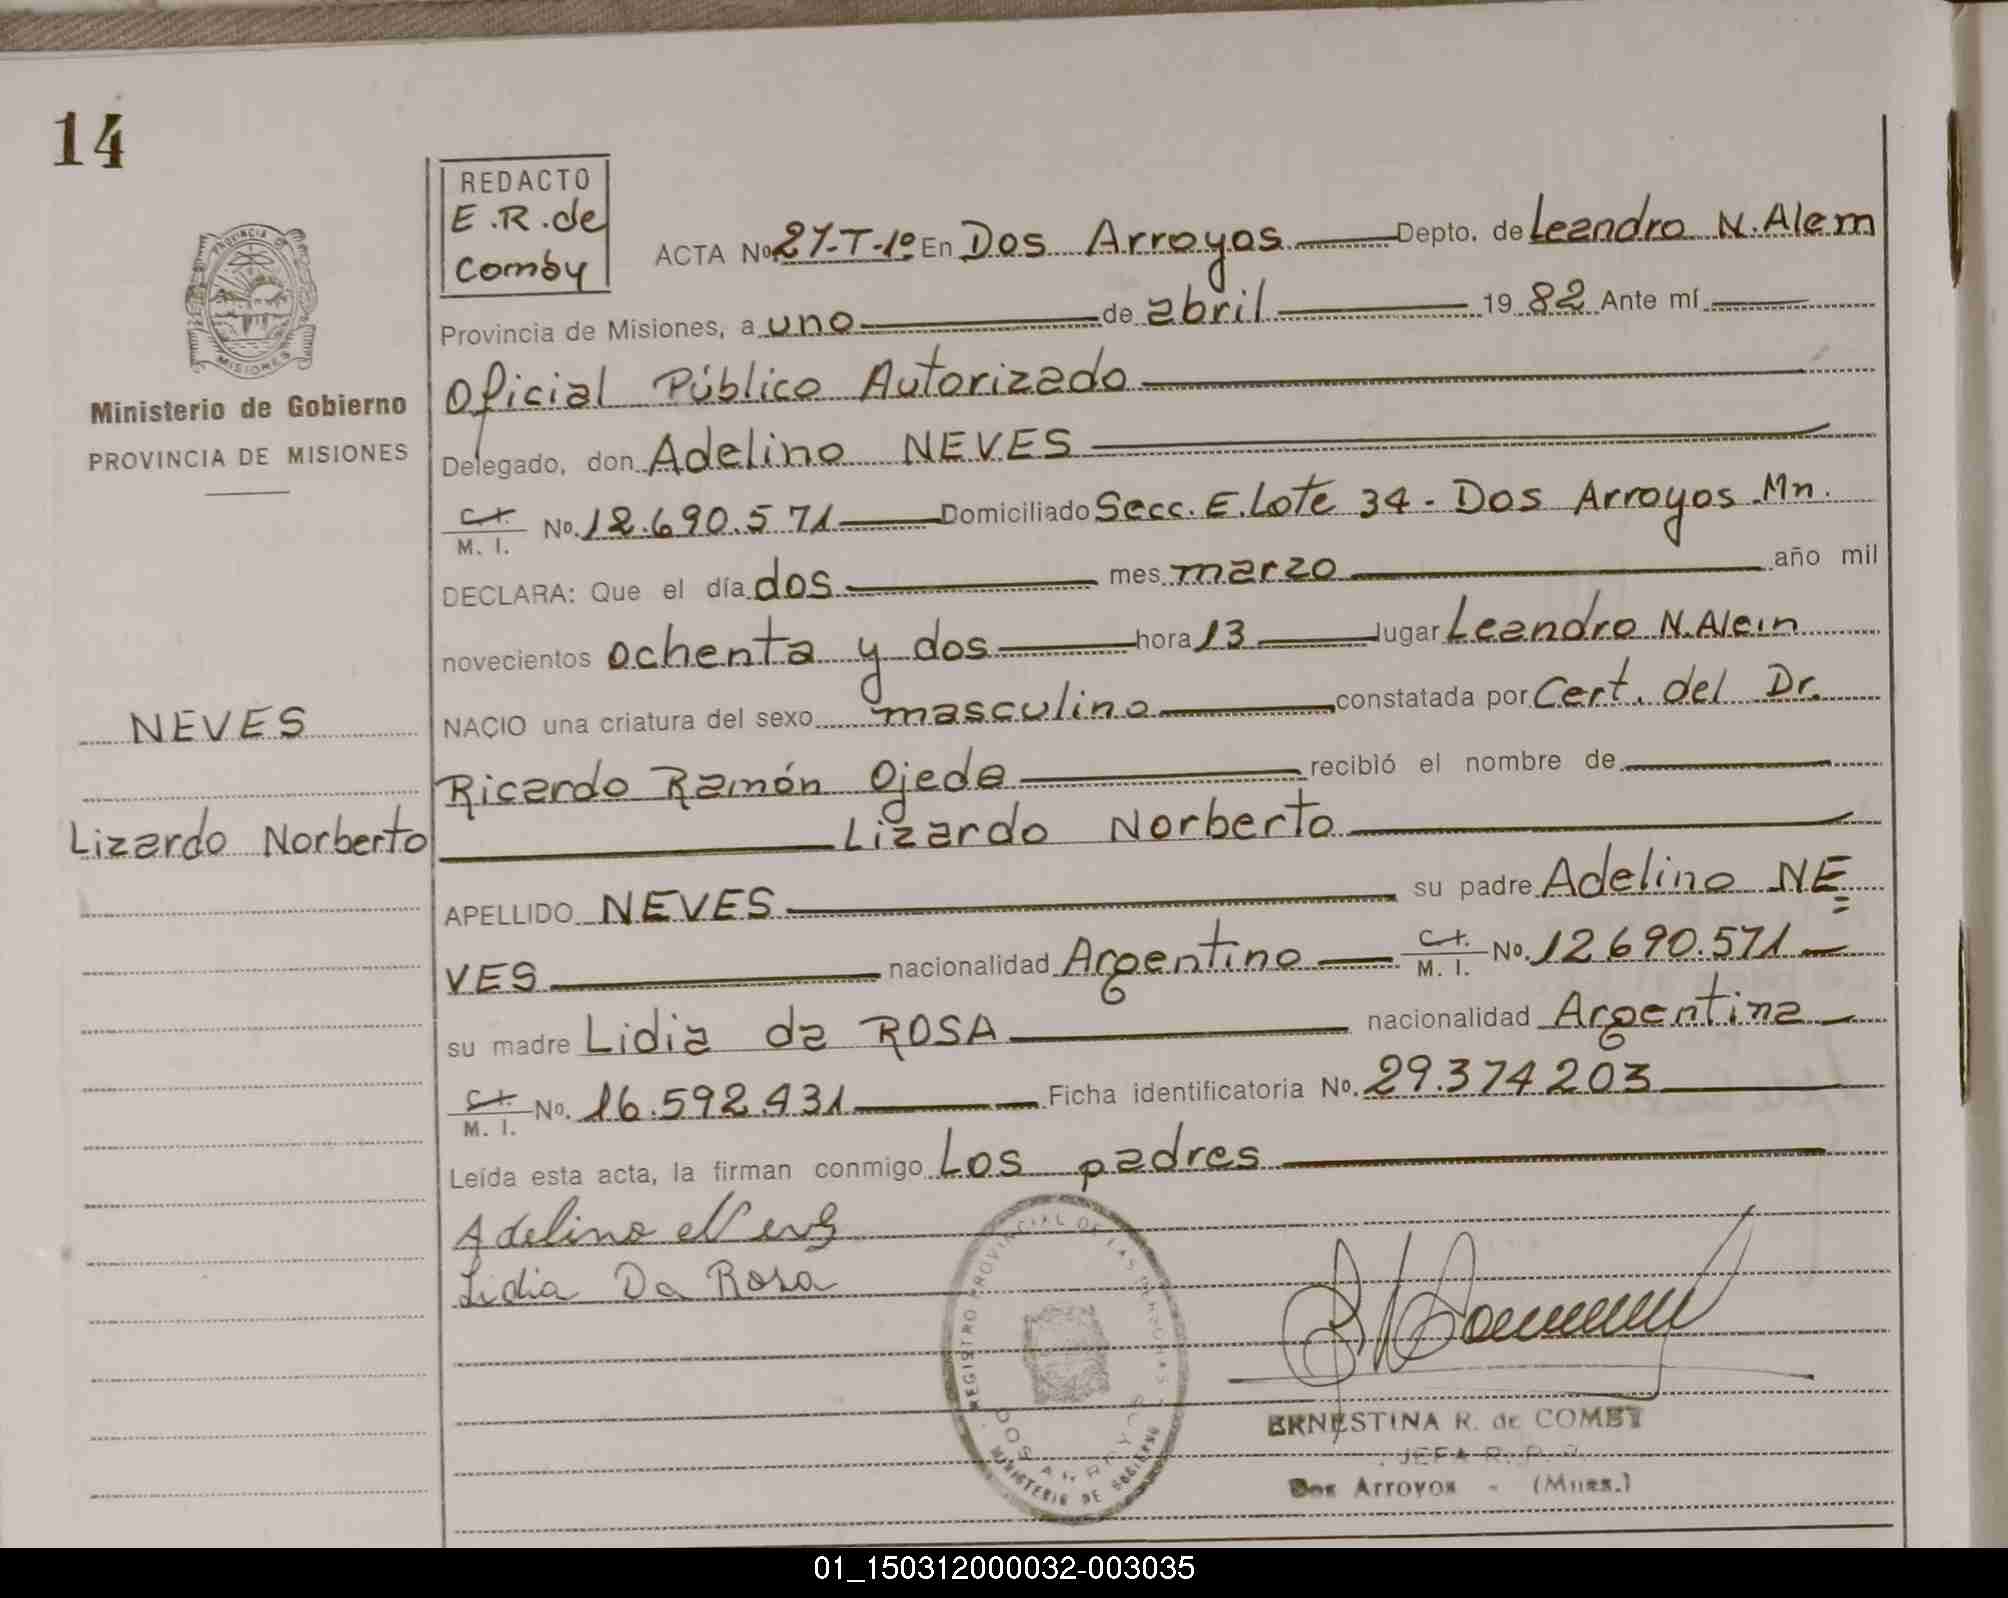 14
REDACTO
E.R.de
Comby
PROVINCIA DE
MISIONES
Ministerio de Gobierno
PROVINCIA DE MISIONES
NEVES
Lizardo Norberto
ACTA No 27-T-1º En Dos Arroyos Depto. de Leandro N. Alem
Provincia de Misiones, a uno de abril 19 82 Ante mí
Oficial Público Autorizado
Delegado, don Adelino NEVES
C.I. M. I. No. 12.690.571 Domiciliado Secc. E. Lote 34 - Dos Arroyos Mn.
DECLARA: Que el día dos mes marzo año mil
novecientos ochenta y dos hora 13 lugar Leandro N. Alem
NACIO una criatura del sexo masculino constatada por Cert. del Dr.
Ricardo Ramón Ojeda recibió el nombre de
Lizardo Norberto
APELLIDO NEVES su padre Adelino NE
VES nacionalidad Argentino C.I. M. I. No. 12.690.571
su madre Lidia da ROSA nacionalidad Argentina
C.I. M. I. No. 16.592.431 Ficha identificatoria No. 29.374203
Leída esta acta, la firman conmigo Los padres
Adelino Neves
Lidia Da Rosa
REGISTRO PROVINCIAL DE LAS PERSONAS
DOS ARROYOS
MINISTERIO DE GOBIERNO
ERNESTINA R. de COMBY
JEFA R. P. P.
Dos Arroyos - (Mnes.)
01_150312000032-003035